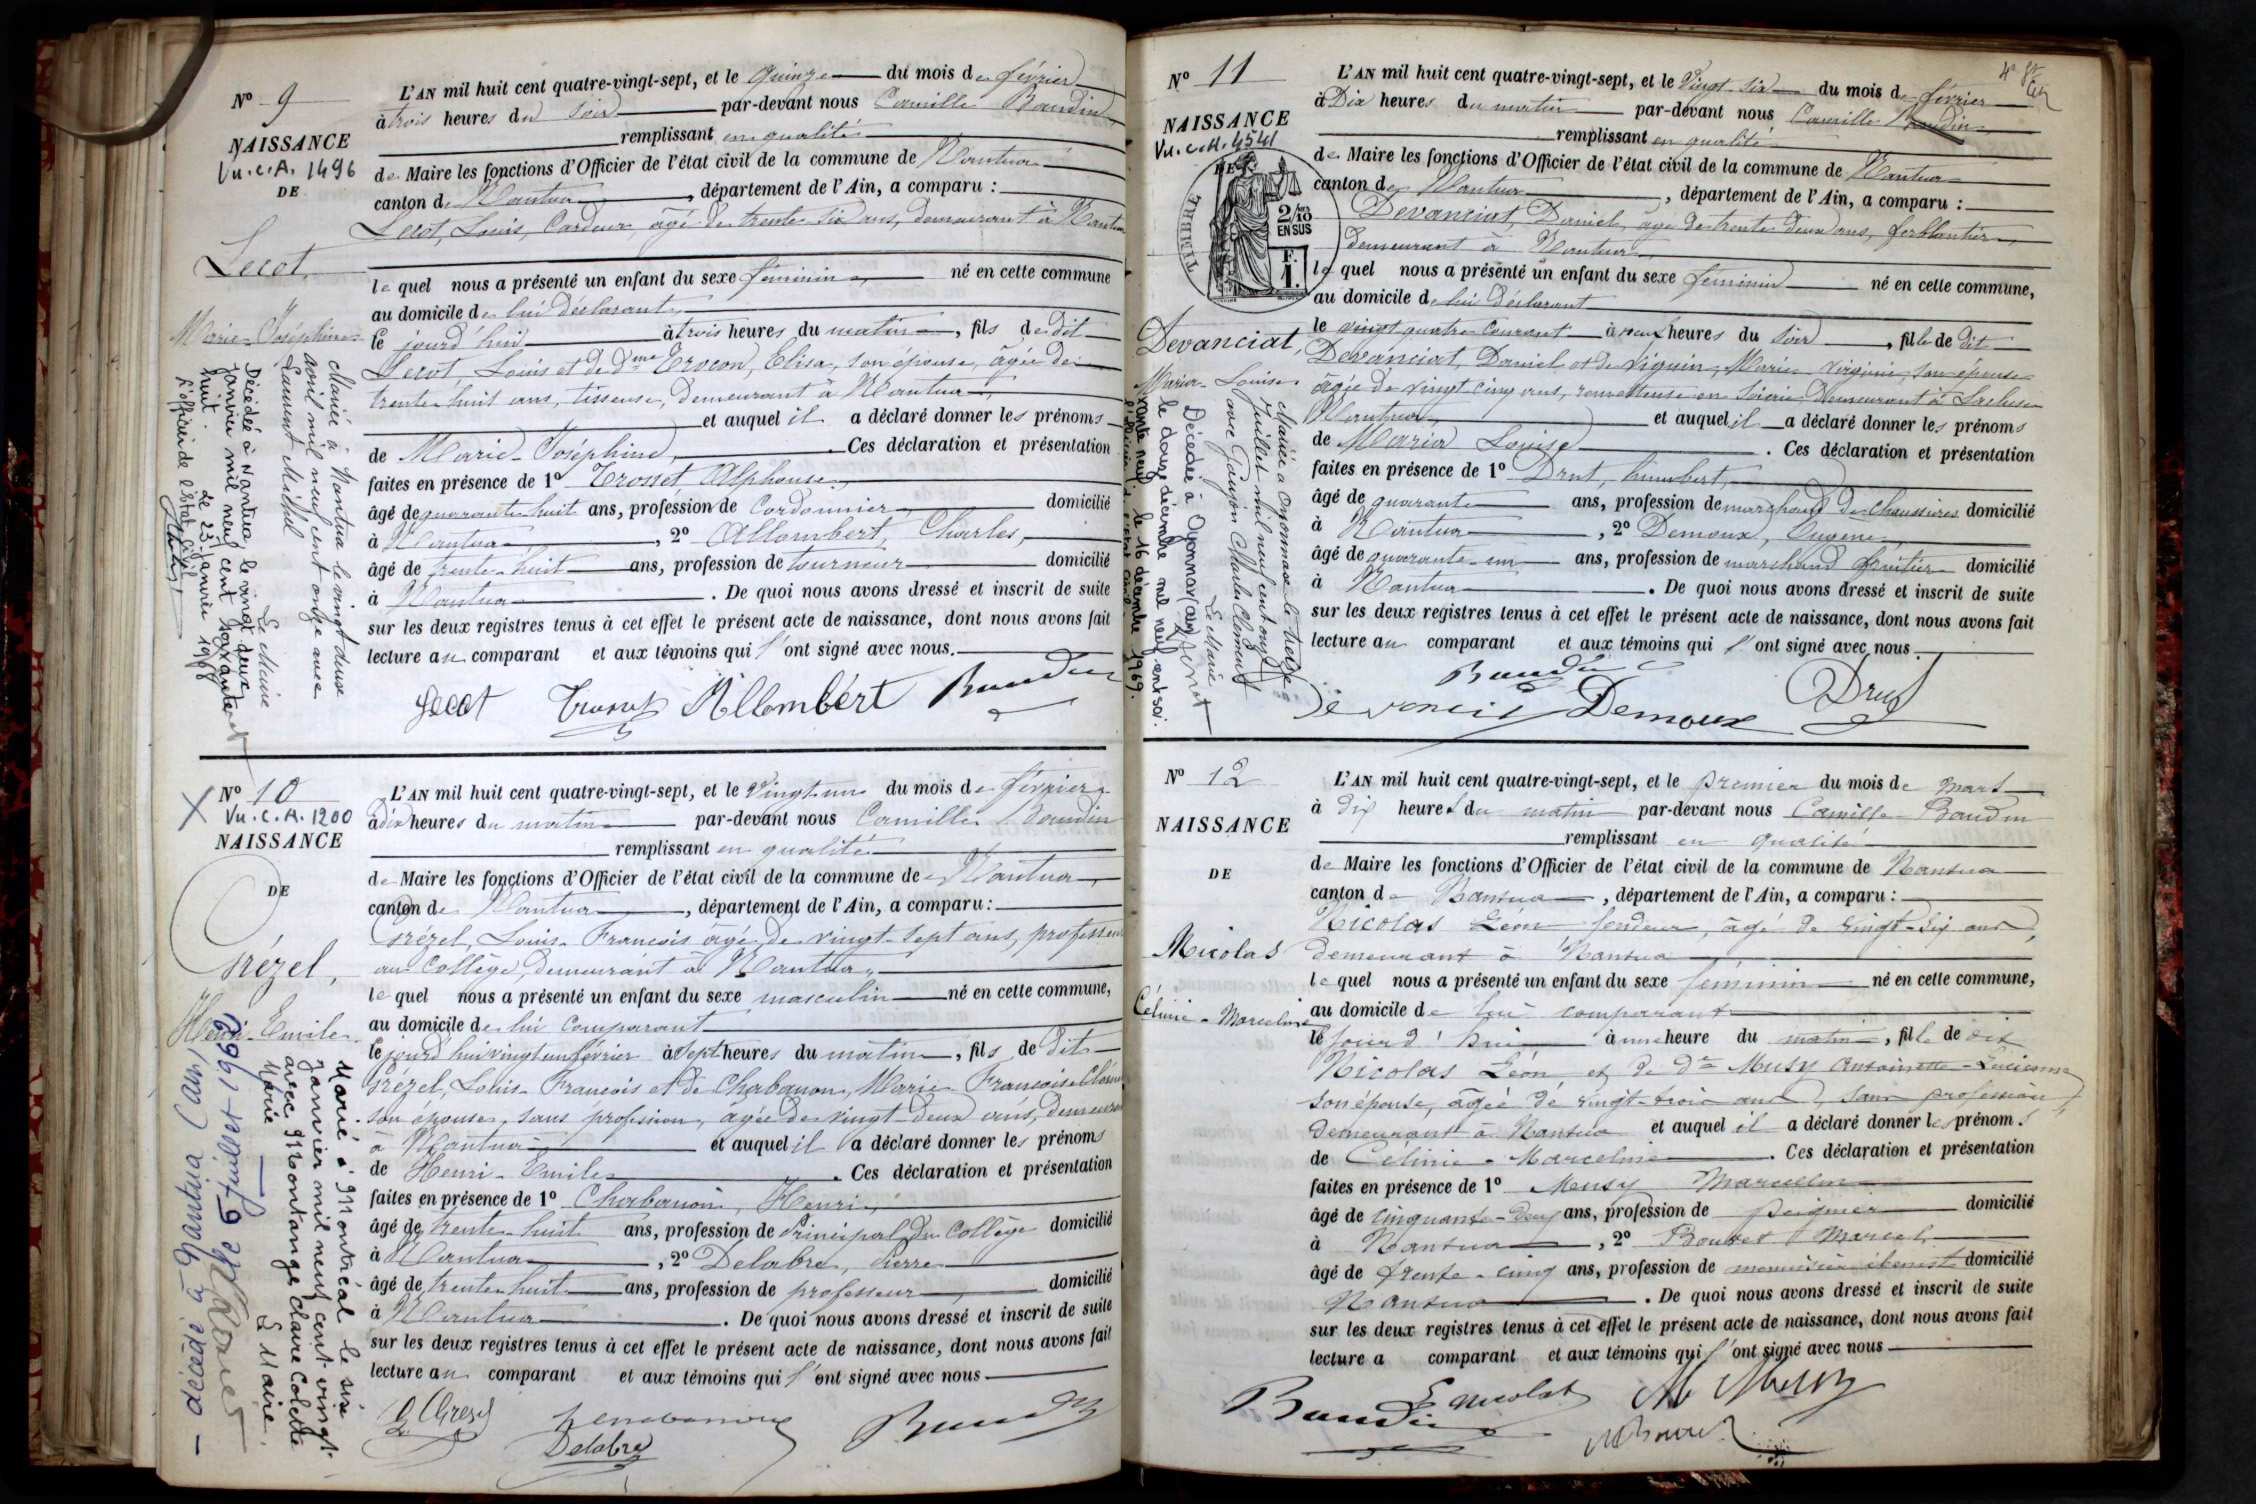 No 9
NAISSANCE
Vu.c.A. 1496
DE
Lecot,
Marie-Joséphine
Mariée à Nantua le vingt deux
avril mil neuf cent onze avec
Laurent Michel
Le Maire
Décédée à Nantua, le vingt deux
janvier mil neuf cent soixante
huit.
Le 23 janvier 1968
l'officier de l'état civil
L'AN mil huit cent quatre-vingt-sept, et le quinze du mois de février
à trois heures du soir par-devant nous Camille Baudin
remplissant en qualité
de Maire les fonctions d'Officier de l'état civil de la commune de Nantua
canton de Nantua, département de l'Ain, a comparu :
Lecot, Louis, Cardeur, âgé de trente six ans, demeurant à Nantua
le quel nous a présenté un enfant du sexe féminin né en cette commune
au domicile de lui déclarant
le jourd'hui à trois heures du matin, fils de dit
Lecot Louis et de dme Trocon, Elisa, son épouse, âgée de
trente huit ans, tisseuse, demeurant à Nantua
et auquel il a déclaré donner les prénoms
de Marie-Joséphine. Ces déclaration et présentation
faites en présence de 1º Trosset Alphonse
âgé de quarante huit ans, profession de Cordonnier domicilié
à Nantua, 2º Allombert, Charles,
âgé de trente-huit ans, profession de tourneur domicilié
à Nantua. De quoi nous avons dressé et inscrit de suite
sur les deux registres tenus à cet effet le présent acte de naissance, dont nous avons fait
lecture au comparant et aux témoins qui l'ont signé avec nous.
Lecot Trosset Allombert Baudin
No 10
Vu.c.A. 1200
NAISSANCE
DE
Grézel,
Henri-Emile
Marié à Montréal le six
janvier mil neuf cent vingt
avec Montange Claire Colette
Marie
Le Maire.
- décédé à Nantua (Ain)
le 6 juillet 1962
L'AN mil huit cent quatre-vingt-sept, et le vingt-un du mois de février
à dix heures du matin par-devant nous Camille Baudin
remplissant en qualité
de Maire les fonctions d'Officier de l'état civil de la commune de Nantua,
canton de Nantua, département de l'Ain, a comparu :
Grézel, Louis-François âgé de vingt-sept ans, professeur
au Collège, demeurant à Nantua,
le quel nous a présenté un enfant du sexe masculin né en cette commune,
au domicile de lui comparant
le jourd'hui vingt un février à sept heures du matin, fils de dit
Grézel, Louis-François et de Chabanon, Marie Françoise
son épouse, sans profession, âgée de vingt-deux ans, demeurant
à Nantua et auquel il a déclaré donner les prénoms
de Henri-Emile. Ces déclaration et présentation
faites en présence de 1º Chabanon, Henri,
âgé de trente-huit ans, profession de Principal du Collège domicilié
à Nantua, 2º Delabre, Pierre
âgé de trente-huit ans, profession de professeur domicilié
à Nantua. De quoi nous avons dressé et inscrit de suite
sur les deux registres tenus à cet effet le présent acte de naissance, dont nous avons fait
lecture au comparant et aux témoins qui l'ont signé avec nous
L Grézel Chabanon Baudin
Delabre
No 11
NAISSANCE
Vu.c.A. 4541
DE
TIMBRE
2/10 EN SUS
F. 1.
Devanciat,
Maria-Louise
Mariée à Oyonnax le treize
Juillet mil neuf cent onze
avec Goujon Charles Clément
Le Maire
Décédée à Oyonnax (Ain)
le douze décembre mil neuf cent soi-
xante neuf. le 16 décembre 1969.
l'officier de l'état civil
L'AN mil huit cent quatre-vingt-sept, et le vingt-six du mois de février
à Dix heures du matin par-devant nous Camille Baudin
remplissant en qualité
de Maire les fonctions d'Officier de l'état civil de la commune de Nantua
canton de Nantua, département de l'Ain, a comparu :
Devanciat, Daniel, âgé de trente deux ans, ferblantier
demeurant à Nantua
le quel nous a présenté un enfant du sexe féminin né en cette commune,
au domicile de lui déclarant
le vingt quatre courant à neuf heures du soir, fille de dit
Devanciat, Daniel et de Viguin, Marie Virginie, son épouse
âgée de vingt cinq ans, demeurant à
Nantua et auquel il a déclaré donner les prénoms
de Maria Louise. Ces déclaration et présentation
faites en présence de 1º Drut, humbert,
âgé de quarante ans, profession de marchand de chaussures domicilié
à Nantua, 2º Demoux, Eugène,
âgé de quarante-un ans, profession de marchand fruitier domicilié
à Nantua. De quoi nous avons dressé et inscrit de suite
sur les deux registres tenus à cet effet le présent acte de naissance, dont nous avons fait
lecture au comparant et aux témoins qui l'ont signé avec nous.
Baudin
Devanciat Demoux Drut
No 12
NAISSANCE
DE
Nicolas
Célinie-Marceline
L'AN mil huit cent quatre-vingt-sept, et le premier du mois de mars
à dix heures du matin par-devant nous Camille Baudin
remplissant en qualité
de Maire les fonctions d'Officier de l'état civil de la commune de Nantua
canton de Nantua, département de l'Ain, a comparu :
Nicolas Léon fendeur, âgé de vingt-six ans,
demeurant à Nantua
le quel nous a présenté un enfant du sexe féminin né en cette commune,
au domicile de lui comparant
le jourd'hui à une heure du matin, fille de dit
Nicolas Léon et de De Musy Antoinette-Lucienne
son épouse, âgée de vingt-trois ans, sans profession
demeurant à Nantua et auquel il a déclaré donner les prénoms
de Célinie-Marceline. Ces déclaration et présentation
faites en présence de 1º Musy Marcellin
âgé de cinquante-deux ans, profession de peignier domicilié
à Nantua, 2º Bouvet Marcel,
âgé de trente-cinq ans, profession de menuisier ébéniste domicilié
Nantua. De quoi nous avons dressé et inscrit de suite
sur les deux registres tenus à cet effet le présent acte de naissance, dont nous avons fait
lecture a comparant et aux témoins qui l'ont signé avec nous
Baudin L Nicolas M Musy
M Bouvet